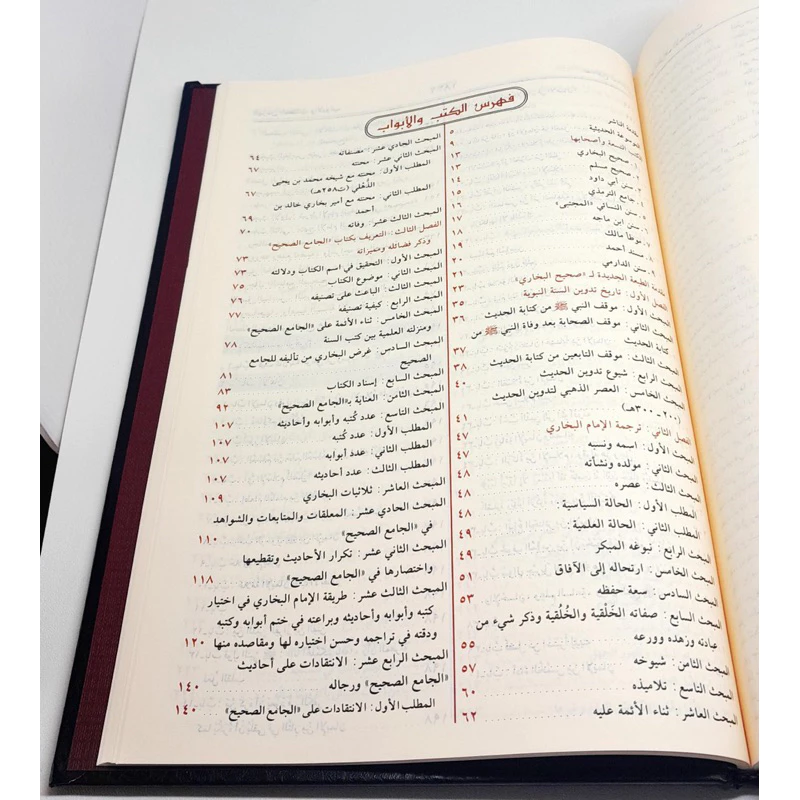 فهرس الكتب والأبواب
مقدمة الناشر ٥
الموسوعة الحديثية
الكتب التسعة وأصحابها ٩
١. صحيح البخاري ١٣
٢. صحيح مسلم ١٣
٣. سنن أبي داود ١٤
٤. جامع الترمذي ١٥
٥. سنن النسائي «المجتبى» ١٦
٦. سنن ابن ماجه ١٧
٧. موطأ مالك ١٨
٨. مسند أحمد ١٩
٩. سنن الدارمي ٢٠
مقدمة الطبعة الجديدة لـ«صحيح البخاري» ٢١
الفصل الأول: تاريخ تدوين السنة النبوية ٣٥
المبحث الأول: موقف النبي ﷺ من كتابة الحديث ٣٦
المبحث الثاني: موقف الصحابة بعد وفاة النبي ﷺ من
كتابة الحديث ٣٧
المبحث الثالث: موقف التابعين من كتابة الحديث ٣٨
المبحث الرابع: شيوع تدوين الحديث ٤٠
المبحث الخامس: العصر الذهبي لتدوين الحديث
(٢٠٠-٣٠٠هـ) ٤١
الفصل الثاني: ترجمة الإمام البخاري ٤٧
المبحث الأول: اسمه ونسبه ٤٧
المبحث الثاني: مولده ونشأته ٤٧
المبحث الثالث: عصره ٤٨
المطلب الأول: الحالة السياسية: ٤٨
المطلب الثاني: الحالة العلمية: ٤٩
المبحث الرابع: نبوغه المبكر ٤٩
المبحث الخامس: ارتحاله إلى الآفاق ٥١
المبحث السادس: سعة حفظه ٥٣
المبحث السابع: صفاته الخَلْقية والخُلُقية وذكر شيء من
عبادته وزهده وورعه ٥٥
المبحث الثامن: شيوخه ٥٧
المبحث التاسع: تلاميذه ٦٠
المبحث العاشر: ثناء الأئمة عليه ٦٢
المبحث الحادي عشر: مصنفاته ٦٤
المبحث الثاني عشر: محنته ٦٧
المطلب الأول: محنته مع شيخه محمد بن يحيى
الذُّهْلي (ت٢٥٨هـ) ٦٧
المطلب الثاني: محنته مع أمير بخارى خالد بن
أحمد ٦٩
المبحث الثالث عشر: وفاته ٧٠
الفصل الثالث: التعريف بكتاب «الجامع الصحيح»
وذكر فضائله ومميزاته ٧٣
المبحث الأول: التحقيق في اسم الكتاب ودلالته ٧٣
المبحث الثاني: موضوع الكتاب ٧٥
المبحث الثالث: الباعث على تصنيفه ٧٦
المبحث الرابع: كيفية تصنيفه ٧٧
المبحث الخامس: ثناء الأئمة على «الجامع الصحيح»
ومنزلته العلمية بين كتب السنة ٧٨
المبحث السادس: غرض البخاري من تأليفه للجامع
الصحيح ٨١
المبحث السابع: إسناد الكتاب ٨٣
المبحث الثامن: العناية بـ«الجامع الصحيح» ٩٢
المبحث التاسع: عدد كُتبه وأبوابه وأحاديثه ١٠٧
المطلب الأول: عدد كُتبه ١٠٧
المطلب الثاني: عدد أبوابه ١٠٧
المطلب الثالث: عدد أحاديثه ١٠٧
المبحث العاشر: ثلاثيات البخاري ١٠٩
المبحث الحادي عشر: المعلقات والمتابعات والشواهد
في «الجامع الصحيح» ١١٠
المبحث الثاني عشر: تكرار الأحاديث وتقطيعها
واختصارها في «الجامع الصحيح» ١١٨
المبحث الثالث عشر: طريقة الإمام البخاري في اختيار
كتبه وأبوابه وأحاديثه وبراعته في ختم أبوابه وكتبه
ودقته في تراجمه وحسن اختياره لها ومقاصده منها ١٢٠
المبحث الرابع عشر: الانتقادات على أحاديث
«الجامع الصحيح» ورجاله ١٤٠
المطلب الأول: الانتقادات على «الجامع الصحيح» ١٤٠